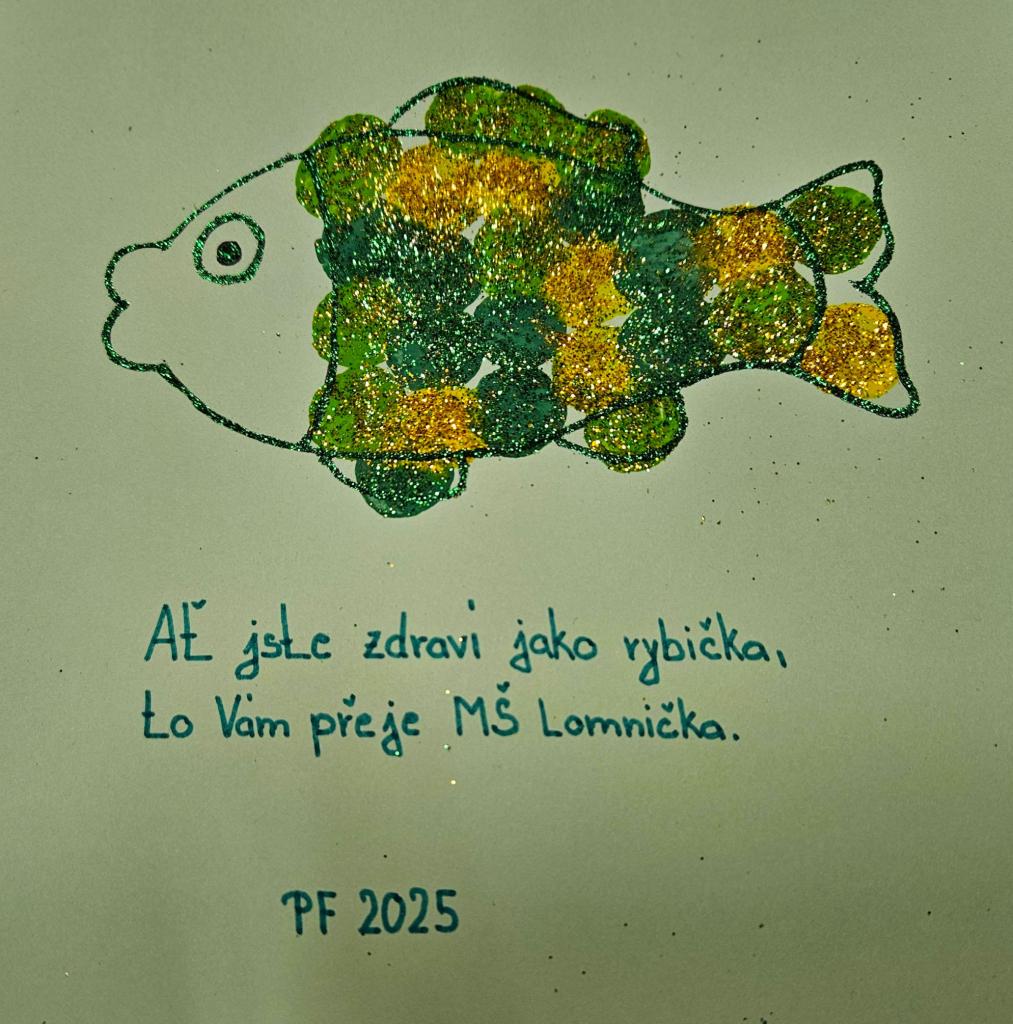 Ať jste zdraví jako rybička,
to Vám přeje MŠ Lomnička.
PF 2025